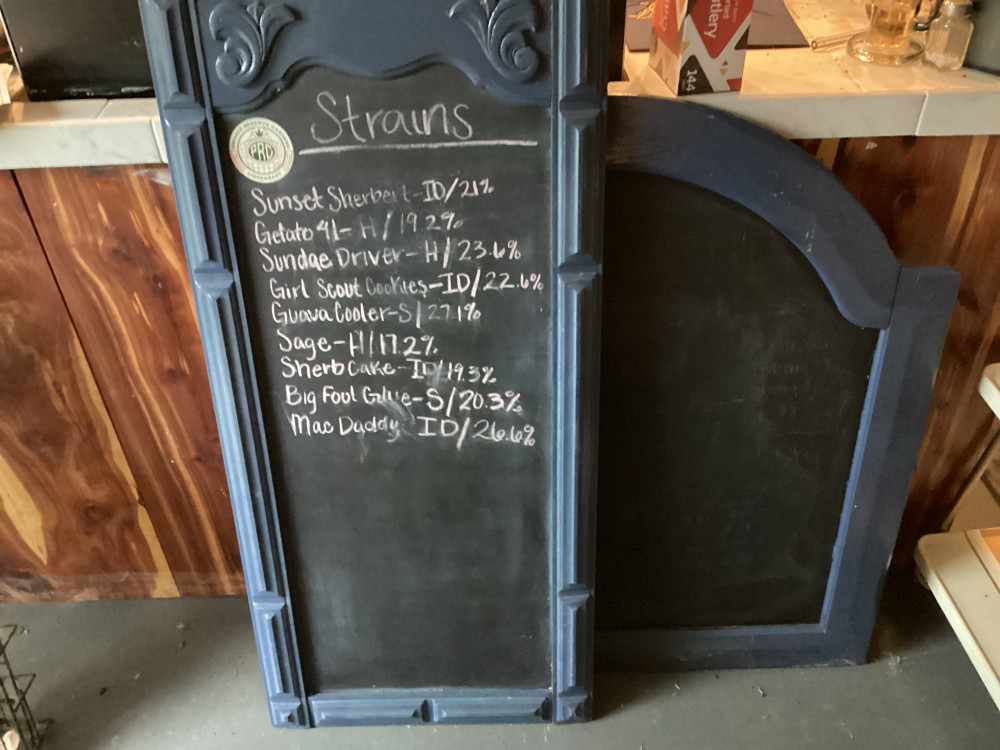 Strains
PRC
Sunset Sherbert-ID/21%
Gelato 41-H/19.2%
Sundae Driver-H/23.6%
Girl Scout Cookies-ID/22.6%
Guava Cooler-S/27.1%
Sage-H/17.2%
Sherb Cake-ID/19.3%
Big Foot Glue-S/20.3%
Mac Daddy ID/26.6%
144